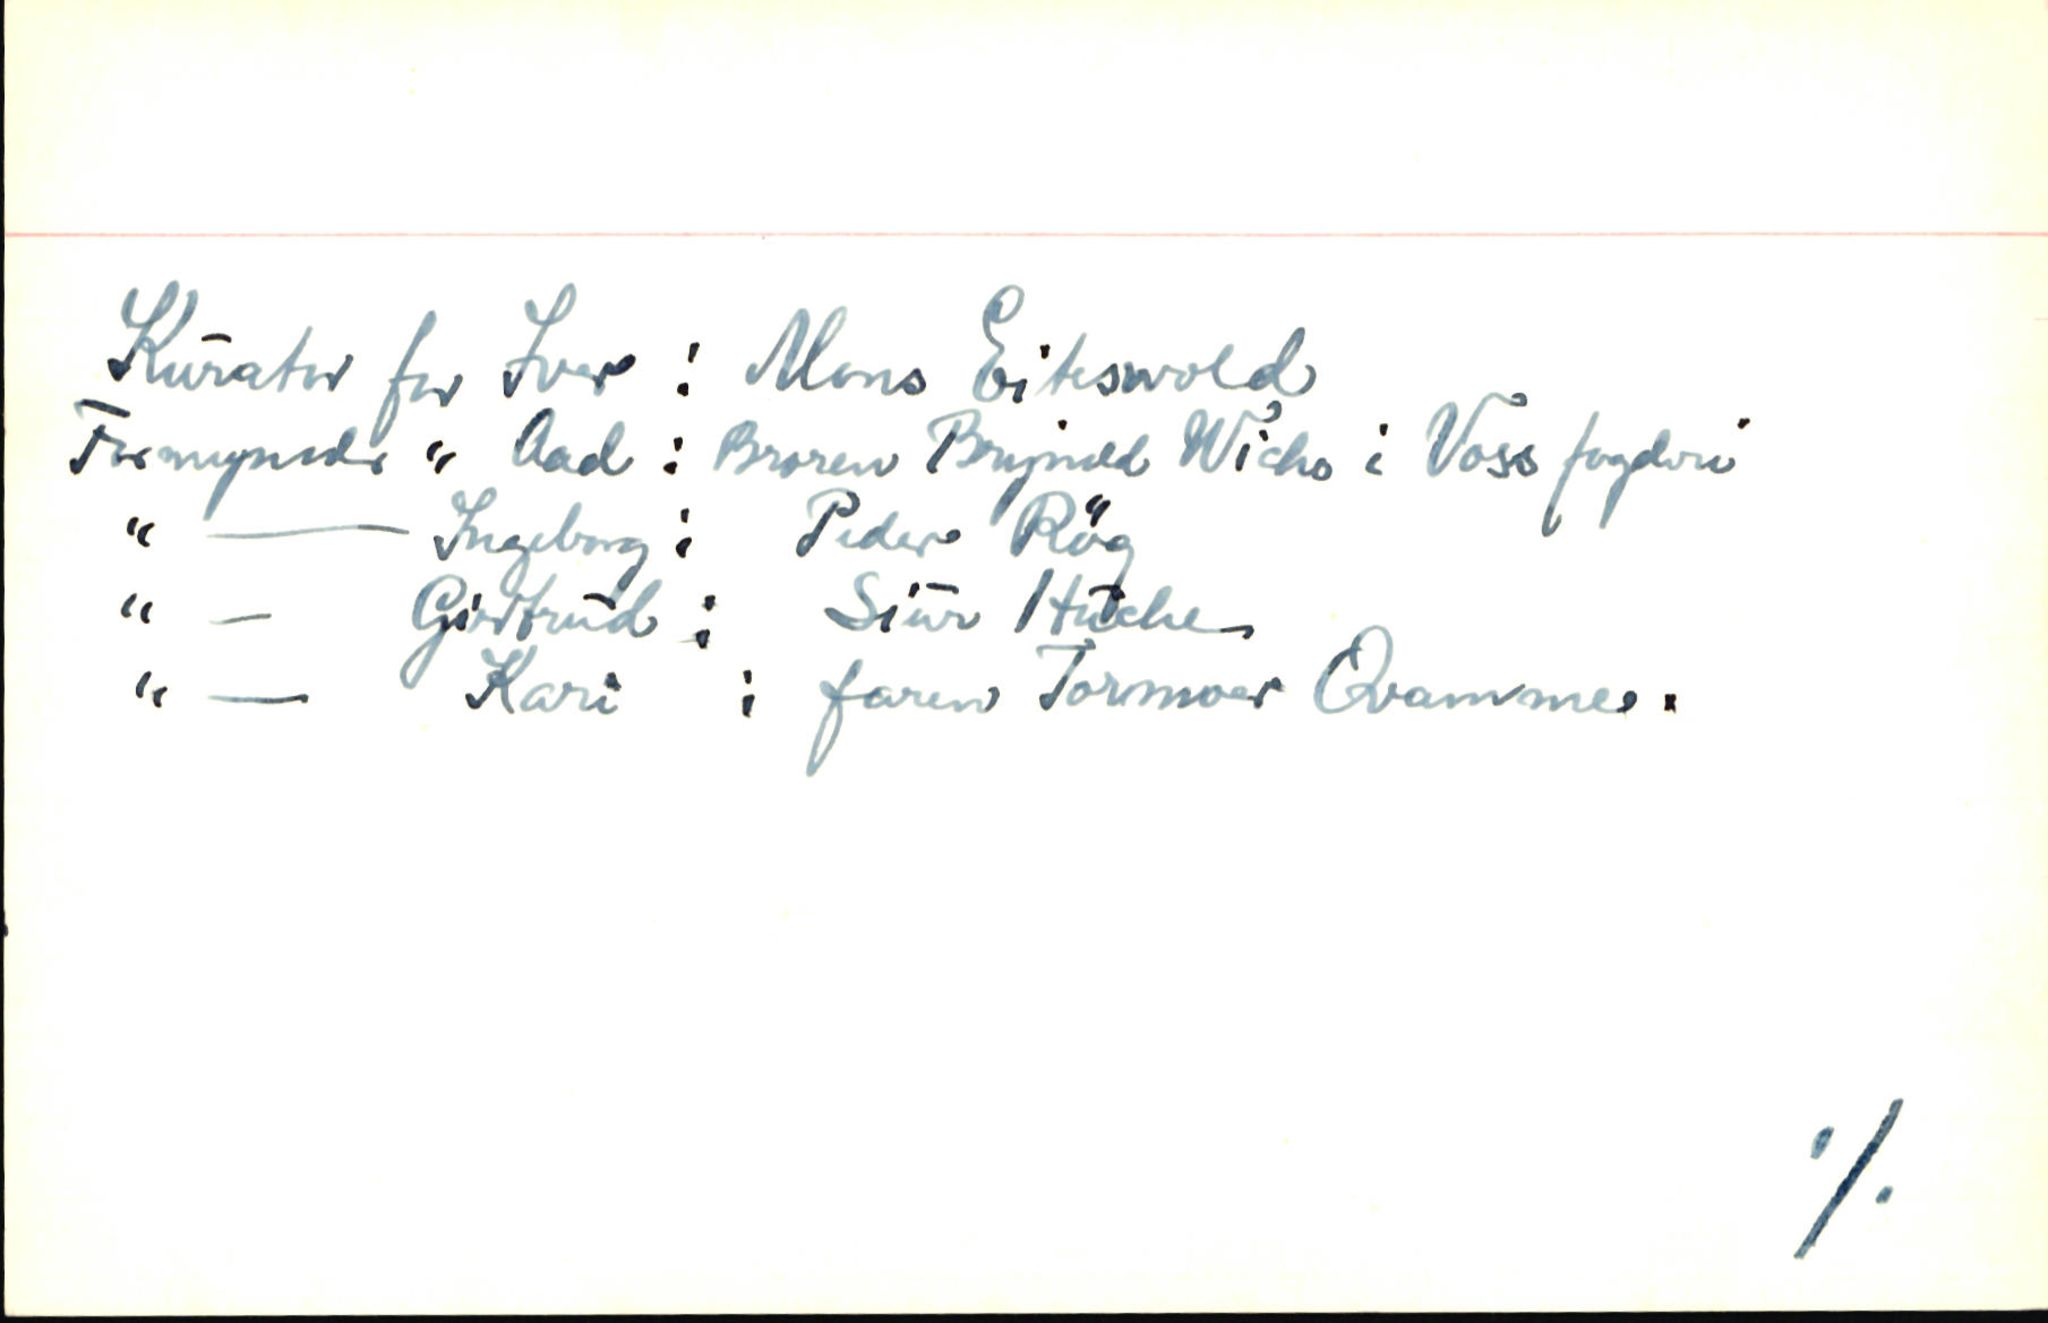 Kurator for Iver : Mons Eiteswold
Formynder " Aad : Broren Brynild Wichs i Voss fogderi
" — Ingeborg : Peder Røg
" — Giertrud : Siur Huche
" — Kari : faren Tormoer Qvamme.
·/.